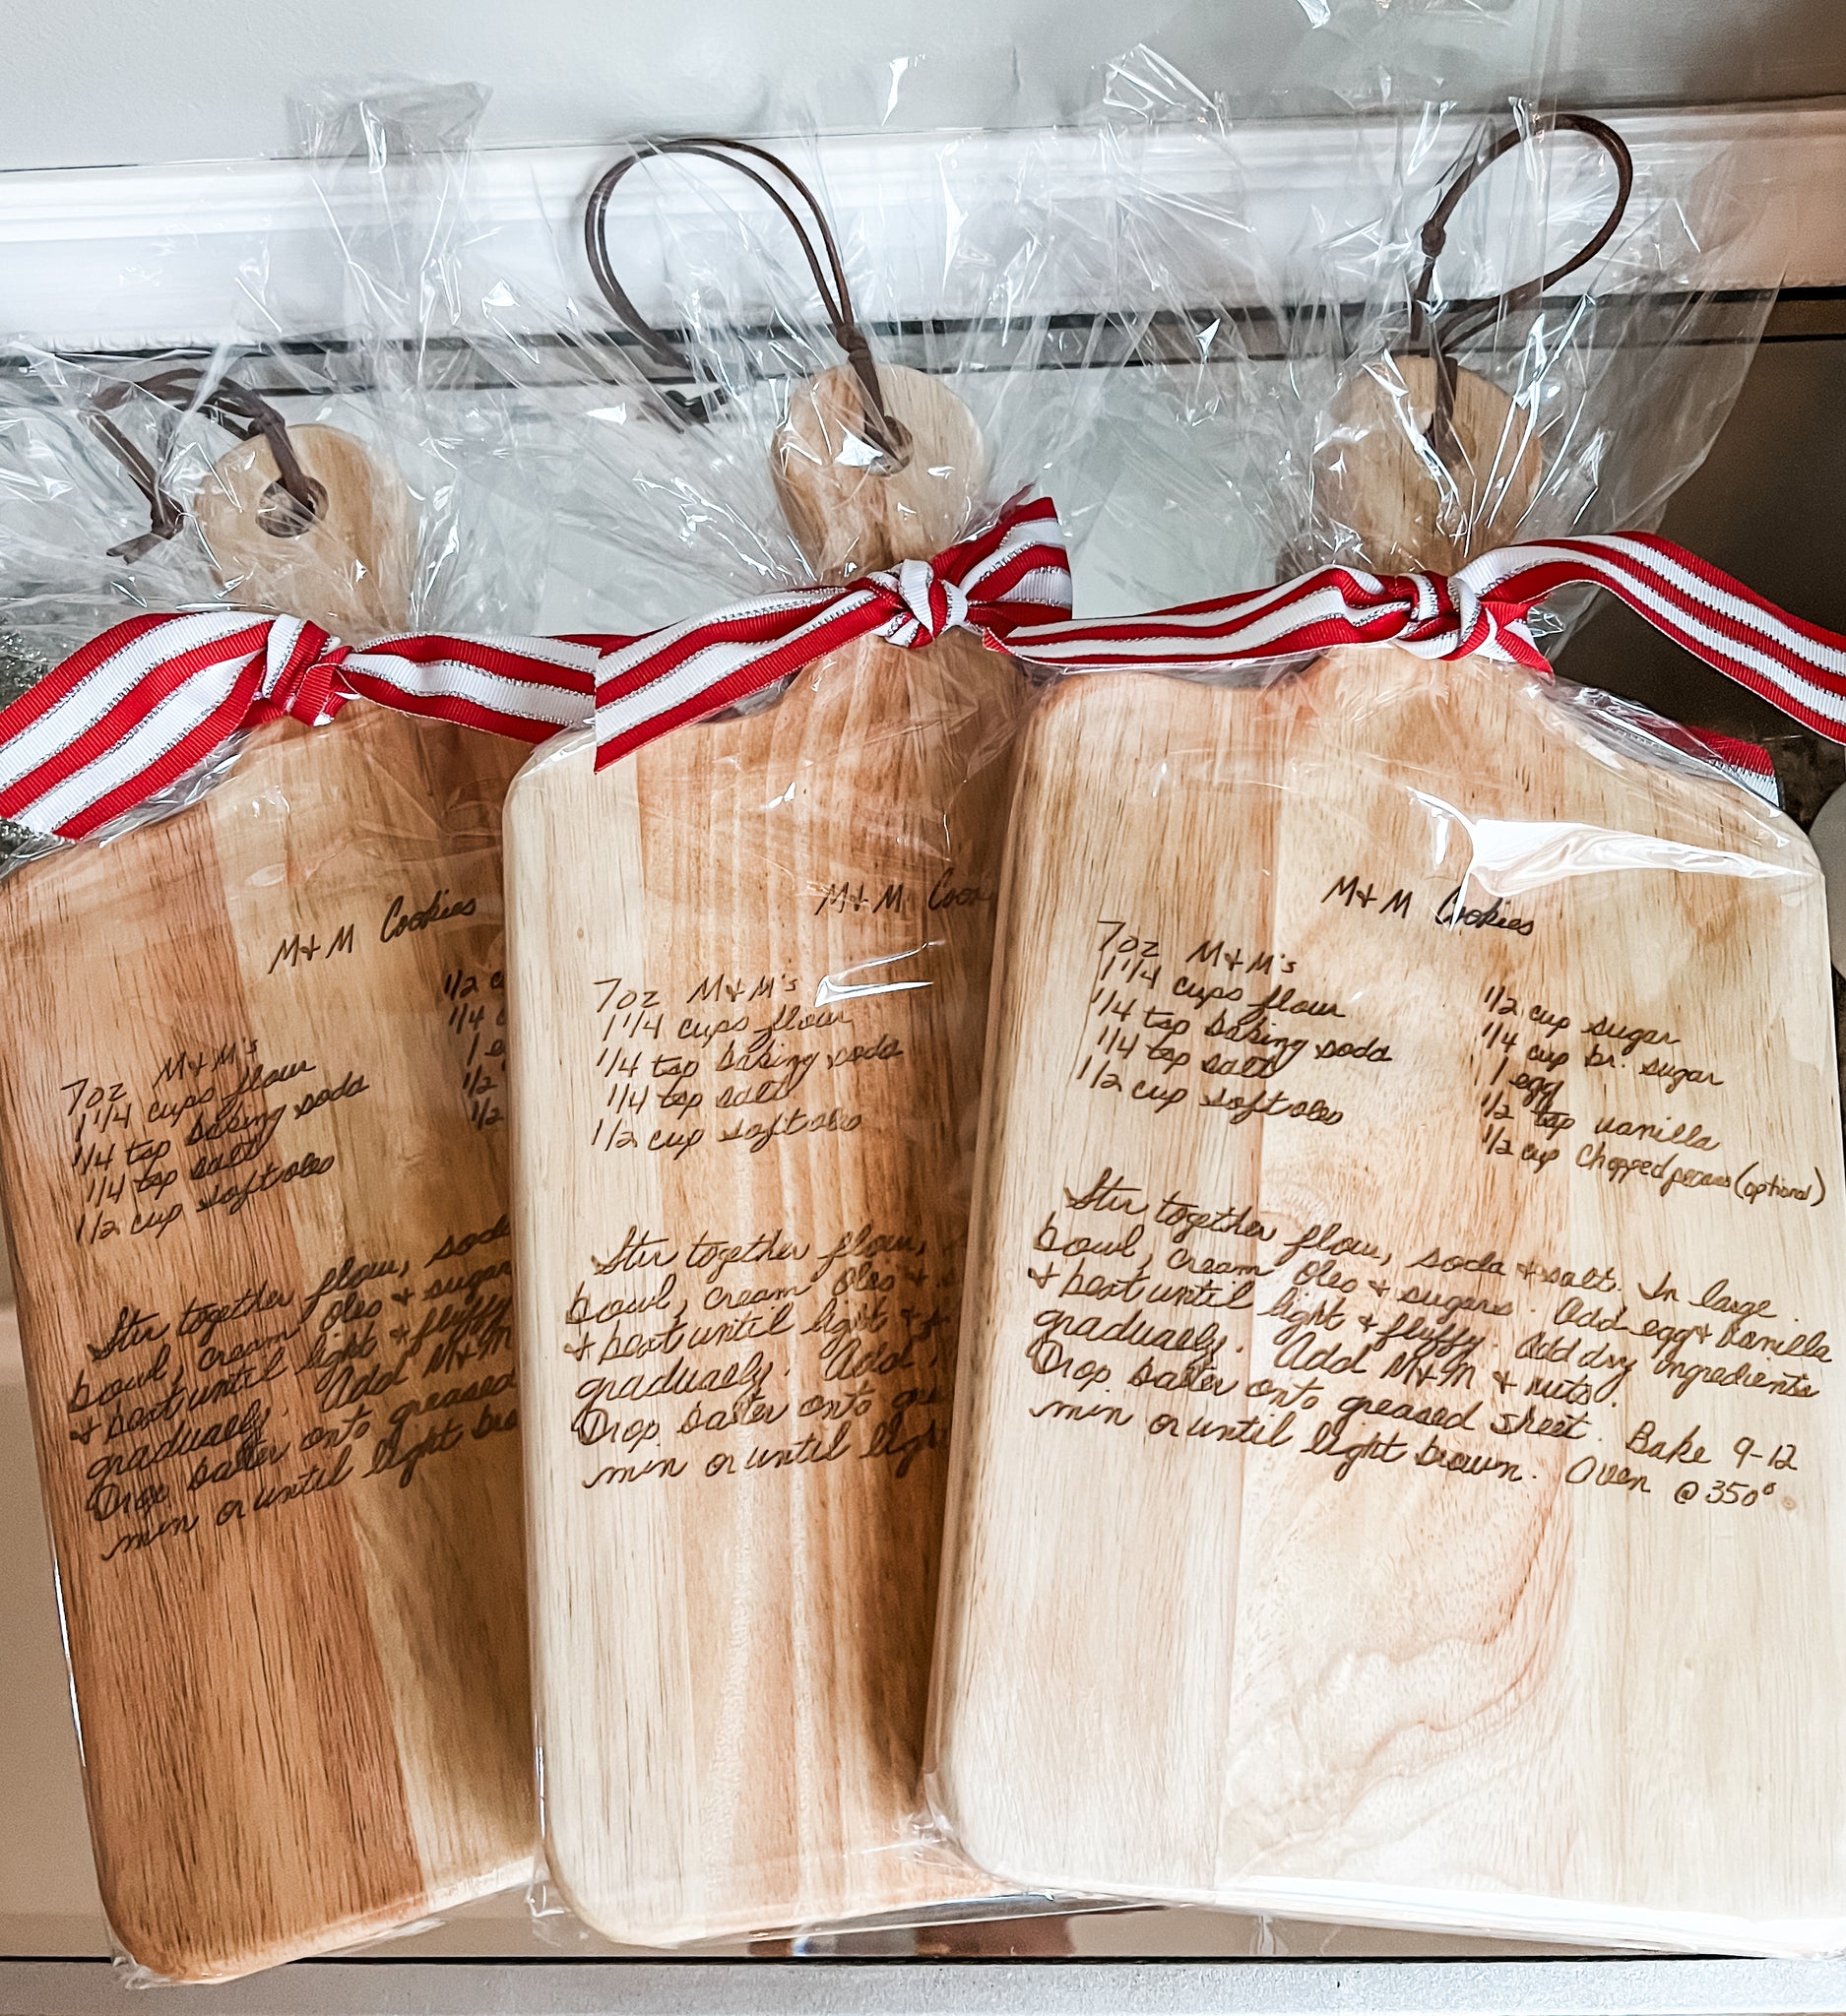 M & M Cookies
7oz M & M's
1 1/4 cups flour
1/4 tsp baking soda
1/4 tsp salt
1/2 cup soft oleo
1/2
1/4
1
1/2
1/2
Stir together flour, soda
bowl, cream oleo & sugar
& beat until light & fluffy
gradually. Add M&M
Drop batter onto greased
min or until light
M & M
7oz M & M's
1 1/4 cups flour
1/4 tsp baking soda
1/4 tsp salt
1/2 cup soft oleo
Stir together flour,
bowl, cream oleo &
& beat until light &
gradually. Add
Drop batter onto
min or until
M & M Cookies
7oz M & M's
1 1/4 cups flour
1/4 tsp baking soda
1/4 tsp salt
1/2 cup soft oleo
1/2 cup sugar
1/4 cup br. sugar
1 egg
1/2 tsp vanilla
1/2 cup chopped pecans (optional)
Stir together flour, soda & salt. In large
bowl, cream oleo & sugars. Add egg & vanilla
& beat until light & fluffy. Add dry ingredients
gradually. Add M&M & nuts.
Drop batter onto greased sheet. Bake 9-12
min or until light brown. Oven @ 350°